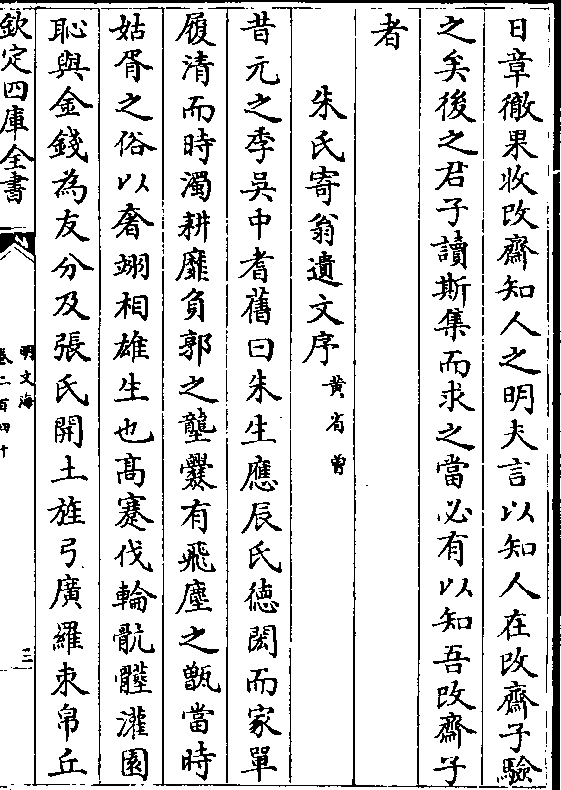 日章徹果收改齋知人之明夫言以知人在改齋子驗
之矣後之君子讀斯集而求之當必有以知吾改齋子
者
朱氏寄翁遺文序 黄省曾
昔元之季吳中耆舊曰朱生應辰氏徳閎而家單
履清而時濁耕靡負郭之壟爨有飛塵之甑當時
姑胥之俗以奢翊相雄生也髙蹇伐輪骯髒灌園
恥與金錢為友分及張氏開土旌弓廣羅束帛丘
欽定四庫全書
明文海
卷二百四十
三